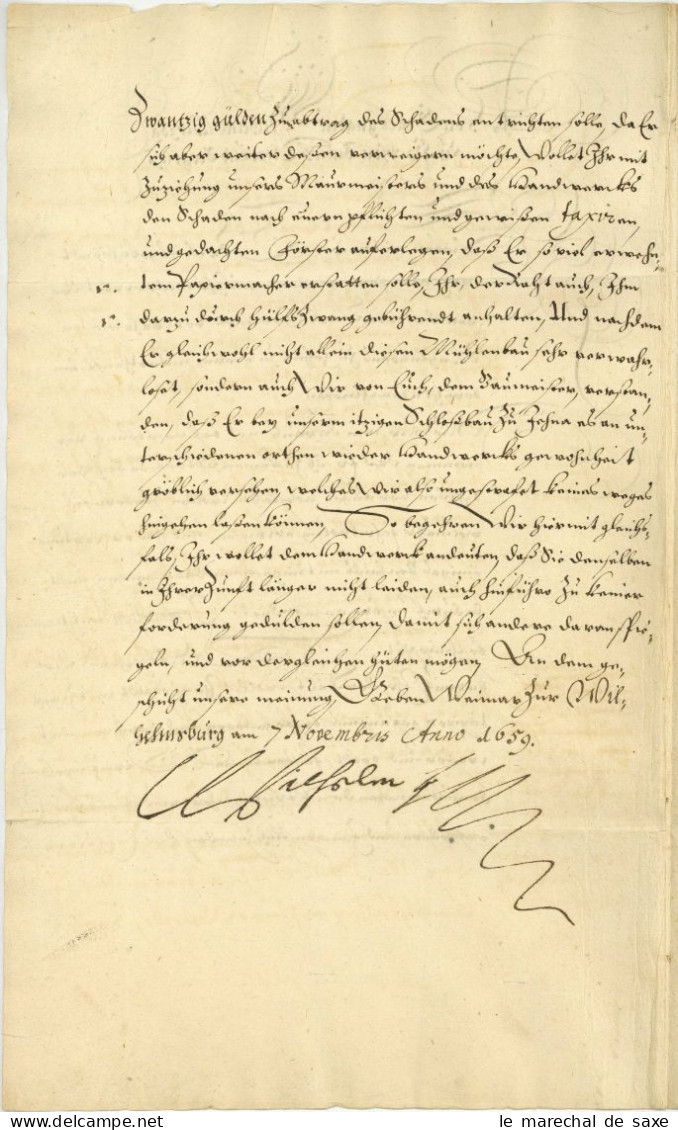 Zwantzig gülden zu abtrag des Schadens entrichten solle, da Er
sich aber weiter deßen verweigern möchte, Wollet Ihr mit
Zuziehung unsers Maurmeisters und des Handwercks
den Schaden nach euern pflichten und gewißen taxiren,
und gedachten Förster auferlegen, daß Er so viel erwehn-
tem Papiermacher erstatten solle, Ihr, der Raht auch, Ihn
darzu durch hülfs Zwang gebührendt anhalten, Und nachdem
Er gleichwohl nicht allein diesen Mühlenbau sehr verwahr-
loset, sondern auch Wir von Euch, dem Baumeister, verstan-
den, daß Er bey unserm itzigen Schloßbau Zu Jehna es an un-
terschiedenen orthen wieder Handwercks gewohnheit
gröblich versehen, welches Wir also ungestrafet keines weges
hingehen laßen können, So begehren Wir hiermit gleichs-
fals, Ihr wollet dem Handwerck andeuten, daß Sie denselben
in Ihrer Zunft länger nicht leiden, auch hinführo Zu keiner
forderung gedulden sollen, damit sich andere daran spie-
geln, und vor dergleichen hüten mögen, An dem ge-
schicht unsere meinung, Geben Weimar Zur Wil-
helmsburg am 7 Novembris Anno 1659.
Wilhelm
le marechal de saxe